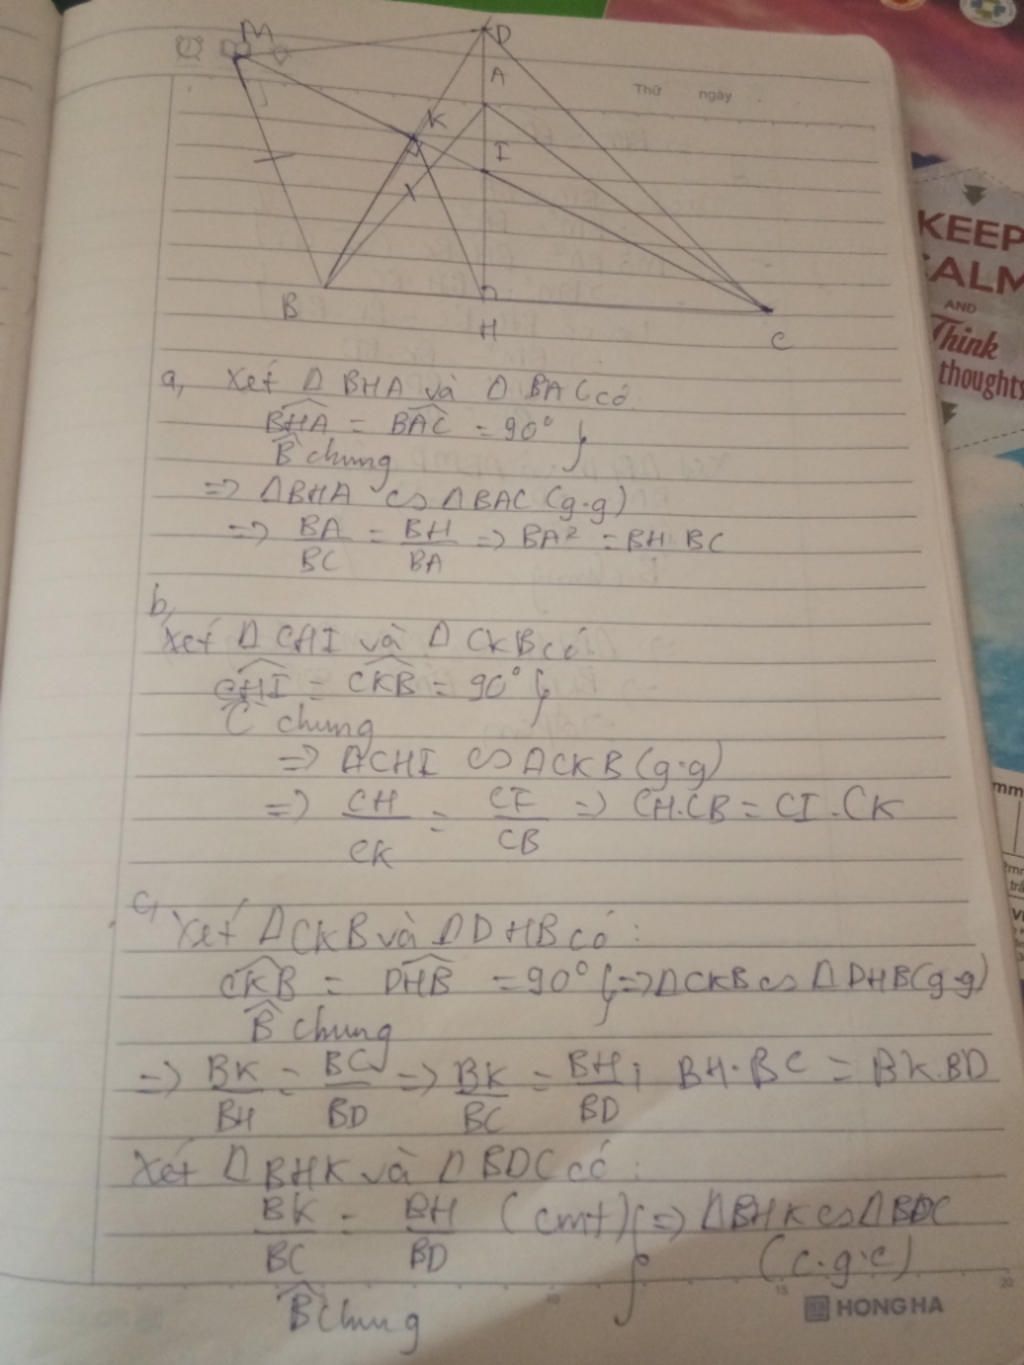 M
D
A
Thứ ngày
K
I
B
H
C
KEEP
CALM
AND
Think
thoughts
a, Xét Δ BHA và Δ BAC có
BHA = BAC = 90° }
B chung
=> ΔBHA ∽ ΔBAC (g.g)
=> BA/BC = BH/BA => BA² = BH.BC
b,
Xét Δ CHI và Δ CKB có
CHI = CKB = 90° }
C chung
=> ΔCHI ∽ ΔCKB (g.g)
=> CH/CK = CI/CB => CH.CB = CI.CK
c, Xét ΔCKB và ΔDHB có :
CKB = DHB = 90° } => ΔCKB ∽ ΔDHB (g.g)
B chung
=> BK/BH = BC/BD => BK/BC = BH/BD ; BH.BC = BK.BD
Xét ΔBHK và ΔBDC có :
BK/BC = BH/BD (cmt) } => ΔBHK ∽ ΔBDC
(c.g.c)
B chung
10 15 20
HONG HA